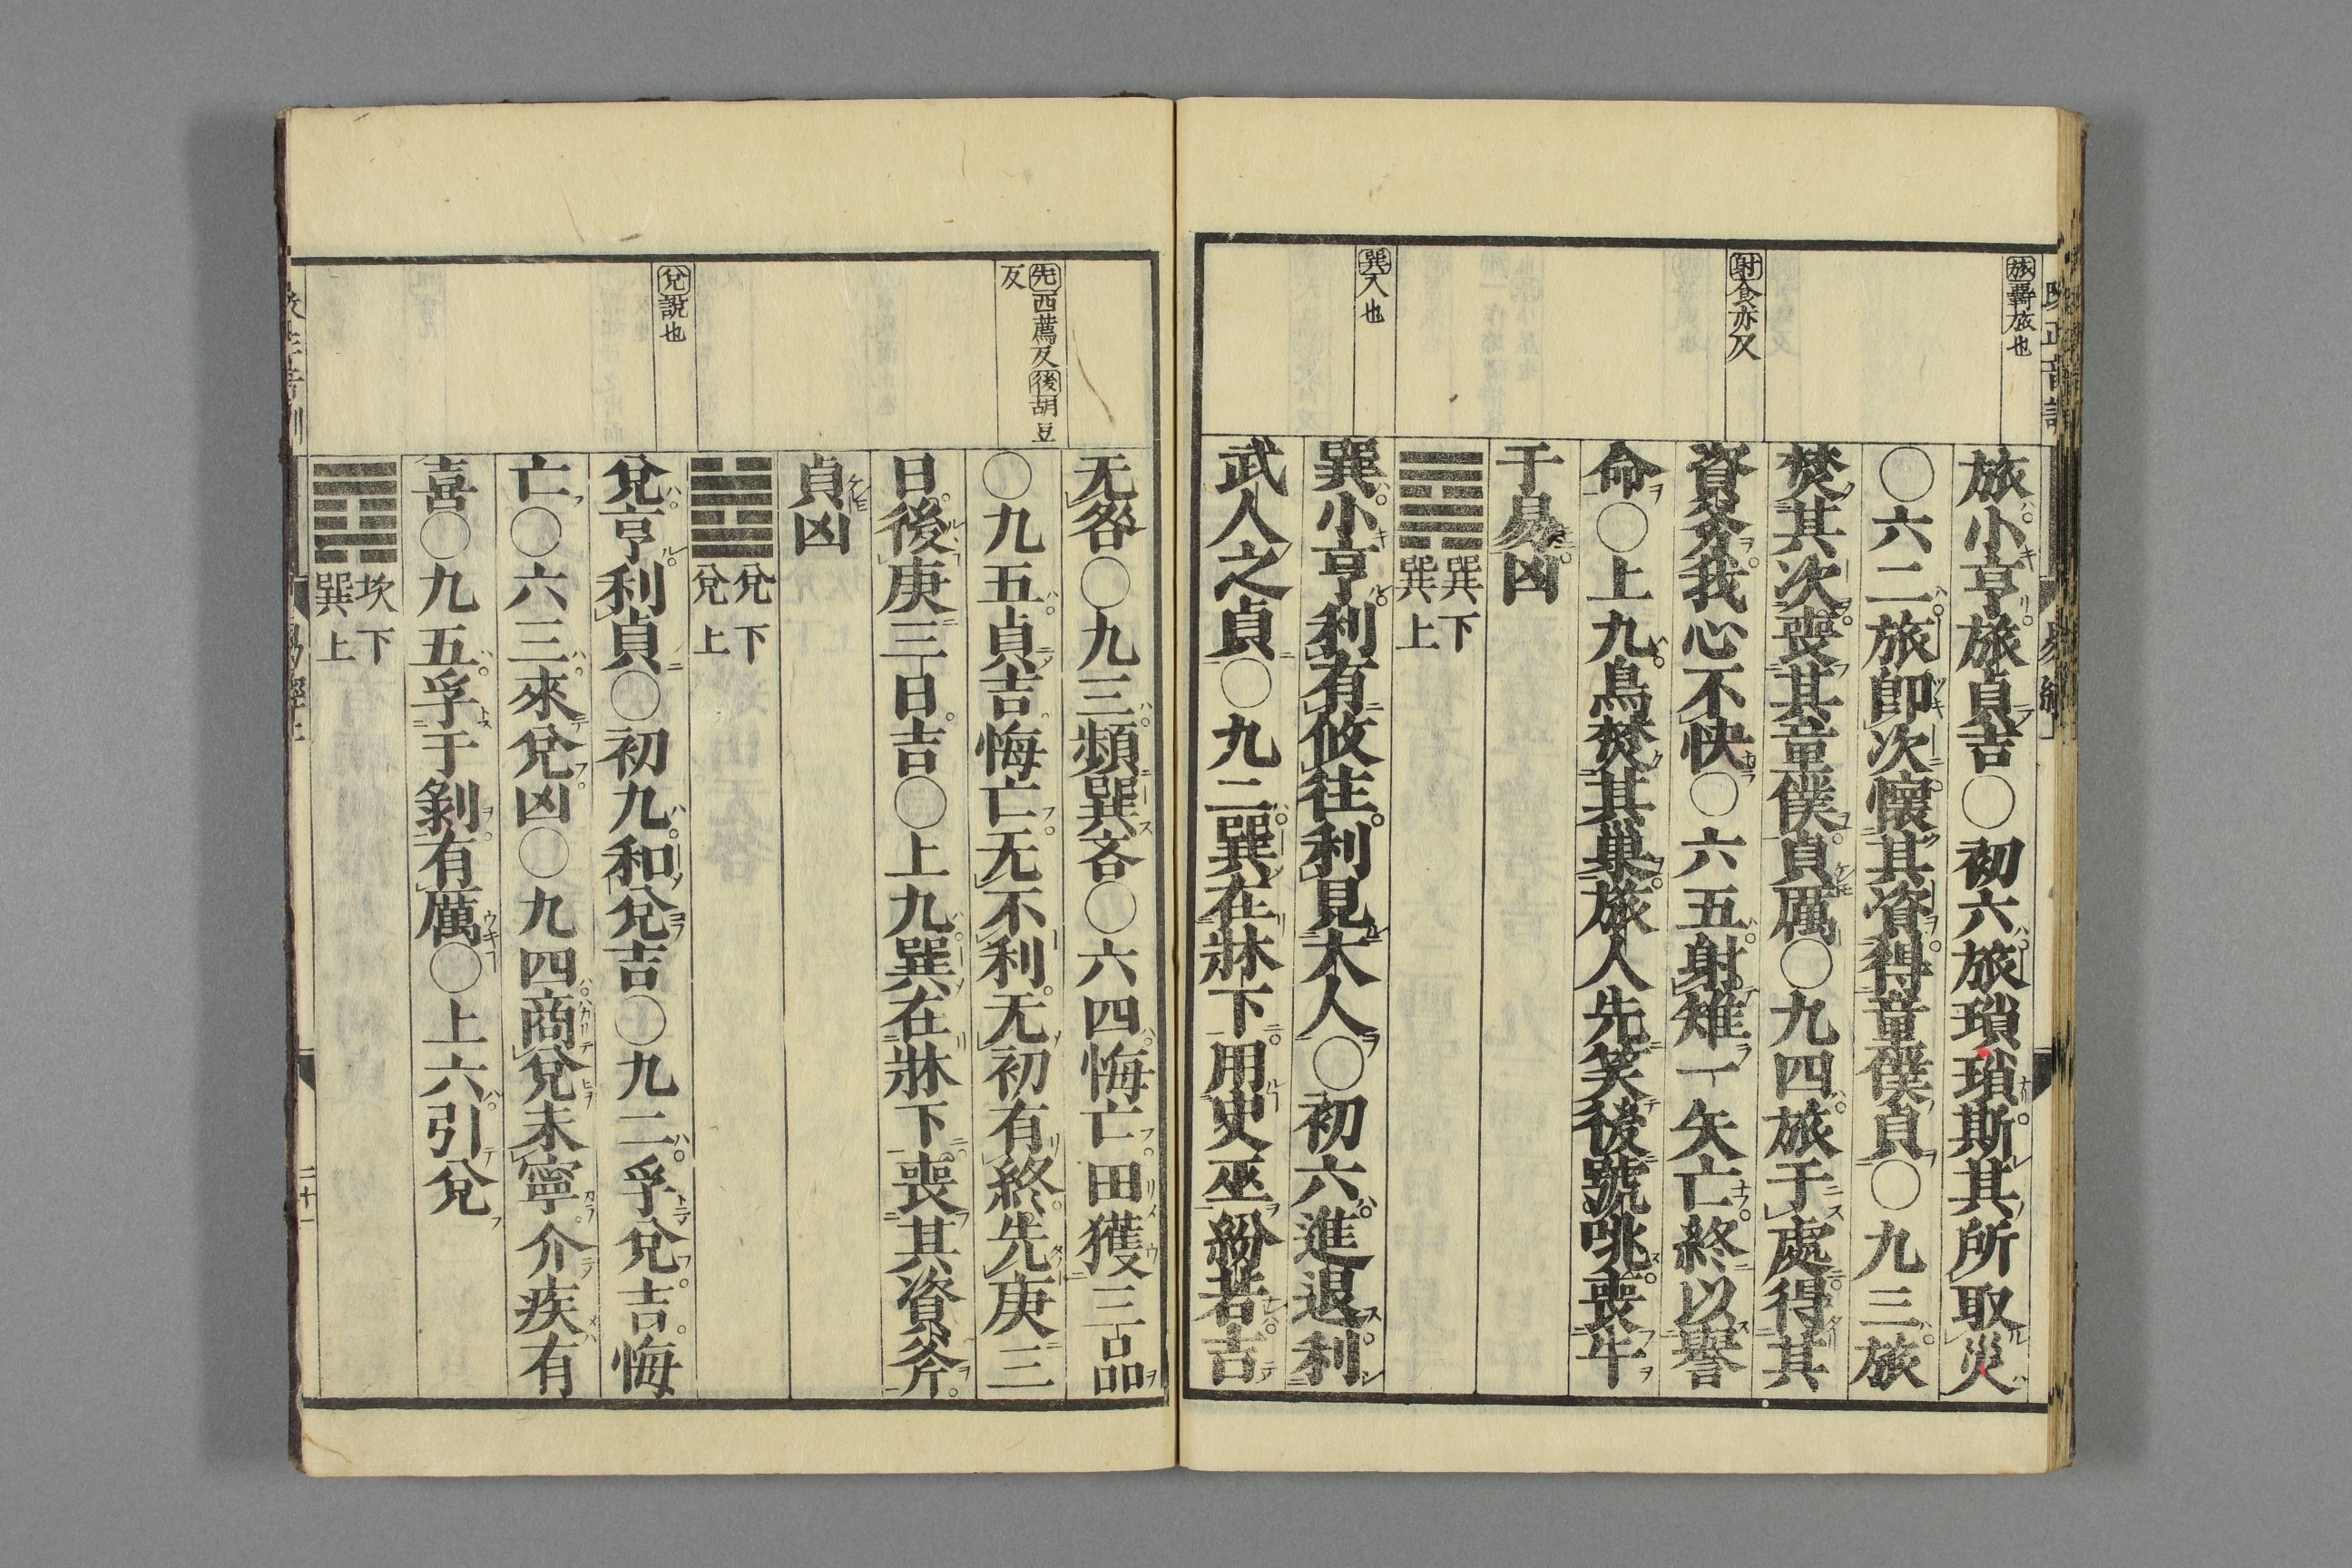 旅羇旅也
射食亦反
巽入也
旅小亨旅貞吉〇初六旅瑣瑣斯其所取災
〇六二旅卽次懷其資得童僕貞〇九三旅
焚其次喪其童僕貞厲〇九四旅于處得其
資斧我心不快〇六五射雉一矢亡終以譽
命〇上九鳥焚其巢旅人先笑後號咷喪牛
于易凶
巽下
巽上
巽小亨利有攸往利見大人〇初六進退利
武人之貞〇九二巽在牀下用史巫紛若吉
先西薦反後胡豆
反
兌說也
无咎〇九三頻巽吝〇六四悔亡田獲三品
〇九五貞吉悔亡无不利无初有終先庚三
日後庚三日吉〇上九巽在牀下喪其資斧
貞凶
兌下
兌上
兌亨利貞〇初九和兌吉〇九二孚兌吉悔
亡〇六三來兌凶〇九四商兌未寧介疾有
喜〇九五孚于剝有厲〇上六引兌
坎下
巽上
二十一